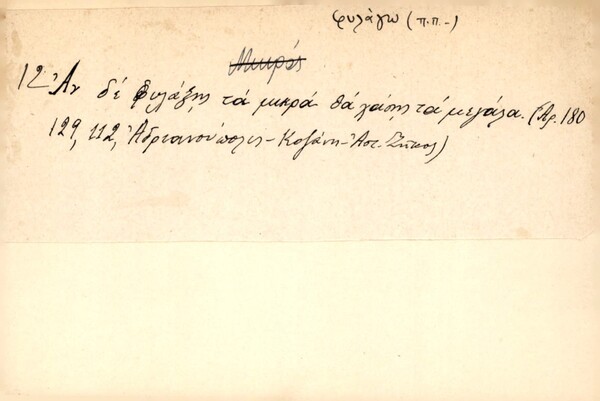 φυλάγω (π.π.-)
Μικρός
12 Ἂν δέ φυλάξῃς τά μικρά θά χάσῃς τά μεγάλα. (Ἀρ. 180
129, 112, Ἀδριανούπολις - Κοζάνη - Ἀστ. Ζῆκος)